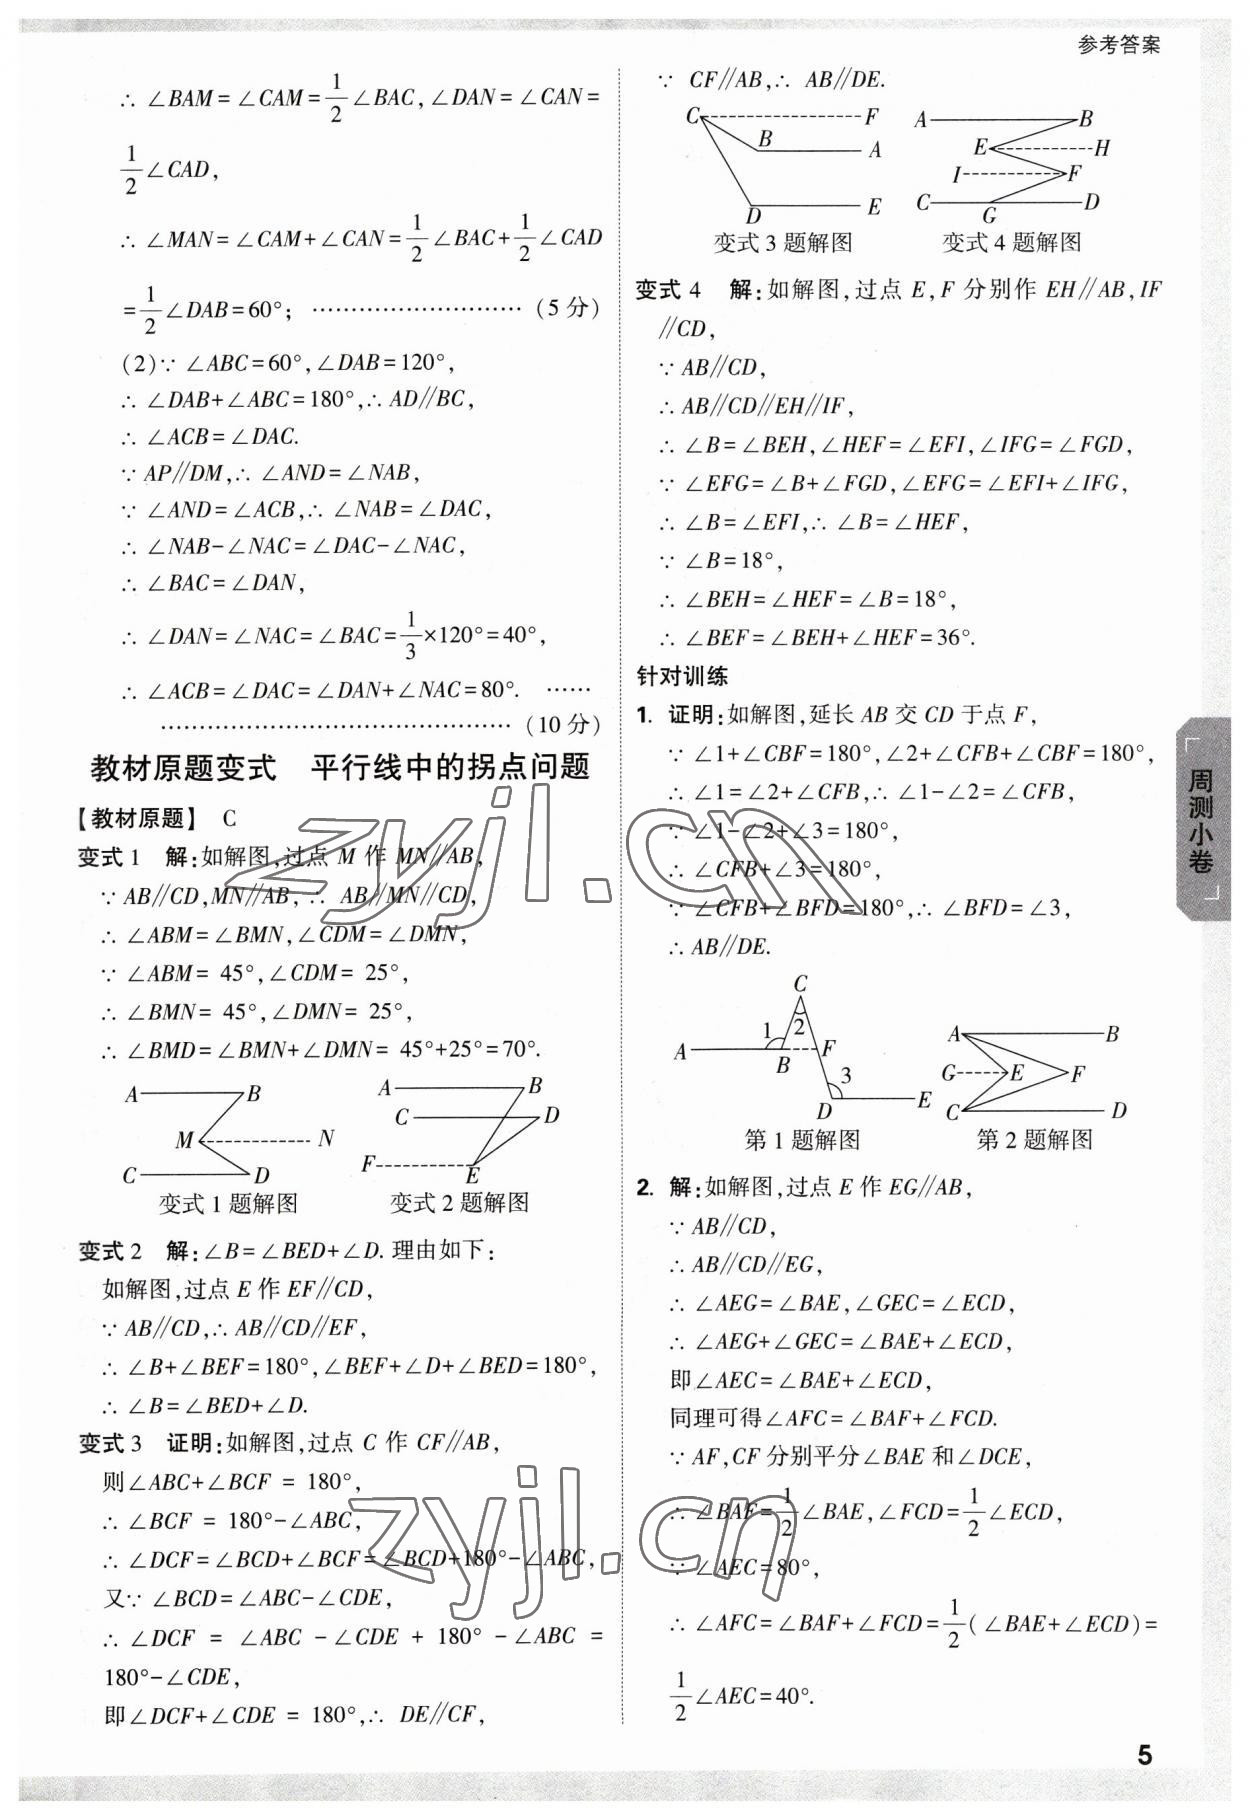 参考答案
∴ ∠BAM=∠CAM=1/2∠BAC,∠DAN=∠CAN=
1/2∠CAD,
∴ ∠MAN=∠CAM+∠CAN=1/2∠BAC+1/2∠CAD
=1/2∠DAB=60°; ………………………(5分)
(2)∵ ∠ABC=60°,∠DAB=120°,
∴ ∠DAB+∠ABC=180°,∴ AD//BC,
∴ ∠ACB=∠DAC.
∵ AP//DM,∴ ∠AND=∠NAB,
∵ ∠AND=∠ACB,∴ ∠NAB=∠DAC,
∴ ∠NAB-∠NAC=∠DAC-∠NAC,
∴ ∠BAC=∠DAN,
∴ ∠DAN=∠NAC=∠BAC=1/3×120°=40°,
∴ ∠ACB=∠DAC=∠DAN+∠NAC=80°. ……
………………………………………(10分)
教材原题变式 平行线中的拐点问题
【教材原题】 C
变式1 解:如解图,过点M作MN//AB,
∵ AB//CD,MN//AB,∴ AB//MN//CD,
∴ ∠ABM=∠BMN,∠CDM=∠DMN,
∵ ∠ABM= 45°,∠CDM= 25°,
∴ ∠BMN= 45°,∠DMN= 25°,
∴ ∠BMD=∠BMN+∠DMN= 45°+25°=70°.
A B M N C D
A B C D F E
变式1题解图 变式2题解图
变式2 解:∠B=∠BED+∠D.理由如下:
如解图,过点E作EF//CD,
∵ AB//CD,∴ AB//CD//EF,
∴ ∠B+∠BEF=180°,∠BEF+∠D+∠BED=180°,
∴ ∠B=∠BED+∠D.
变式3 证明:如解图,过点C作CF//AB,
则∠ABC+∠BCF = 180°,
∴ ∠BCF = 180°-∠ABC,
∴ ∠DCF=∠BCD+∠BCF=∠BCD+180°-∠ABC,
又∵ ∠BCD=∠ABC-∠CDE,
∴ ∠DCF = ∠ABC -∠CDE + 180° -∠ABC =
180°-∠CDE,
即∠DCF+∠CDE = 180°,∴ DE//CF,
∵ CF//AB,∴ AB//DE.
C F B A D E
A B E H I F C G D
变式3题解图 变式4题解图
变式4 解:如解图,过点E,F分别作EH//AB,IF
//CD,
∵ AB//CD,
∴ AB//CD//EH//IF,
∴ ∠B=∠BEH,∠HEF=∠EFI,∠IFG=∠FGD,
∵ ∠EFG=∠B+∠FGD,∠EFG=∠EFI+∠IFG,
∴ ∠B=∠EFI,∴ ∠B=∠HEF,
∵ ∠B=18°,
∴ ∠BEH=∠HEF=∠B=18°,
∴ ∠BEF=∠BEH+∠HEF=36°.
针对训练
1. 证明:如解图,延长AB交CD于点F,
∵ ∠1+∠CBF=180°,∠2+∠CFB+∠CBF=180°,
∴ ∠1=∠2+∠CFB,∴ ∠1-∠2=∠CFB,
∵ ∠1-∠2+∠3=180°,
∴ ∠CFB+∠3=180°,
∵ ∠CFB+∠BFD=180°,∴ ∠BFD=∠3,
∴ AB//DE.
C 1 2 A B F 3 D E
A B G E F C D
第1题解图 第2题解图
2. 解:如解图,过点E作EG//AB,
∵ AB//CD,
∴ AB//CD//EG,
∴ ∠AEG=∠BAE,∠GEC=∠ECD,
∴ ∠AEG+∠GEC=∠BAE+∠ECD,
即∠AEC=∠BAE+∠ECD,
同理可得∠AFC=∠BAF+∠FCD.
∵ AF,CF分别平分∠BAE和∠DCE,
∴ ∠BAF=1/2∠BAE,∠FCD=1/2∠ECD,
∵ ∠AEC=80°,
∴ ∠AFC=∠BAF+∠FCD=1/2(∠BAE+∠ECD)=
1/2∠AEC=40°.
周测小卷
5
zyjl.cn
zyjl.cn